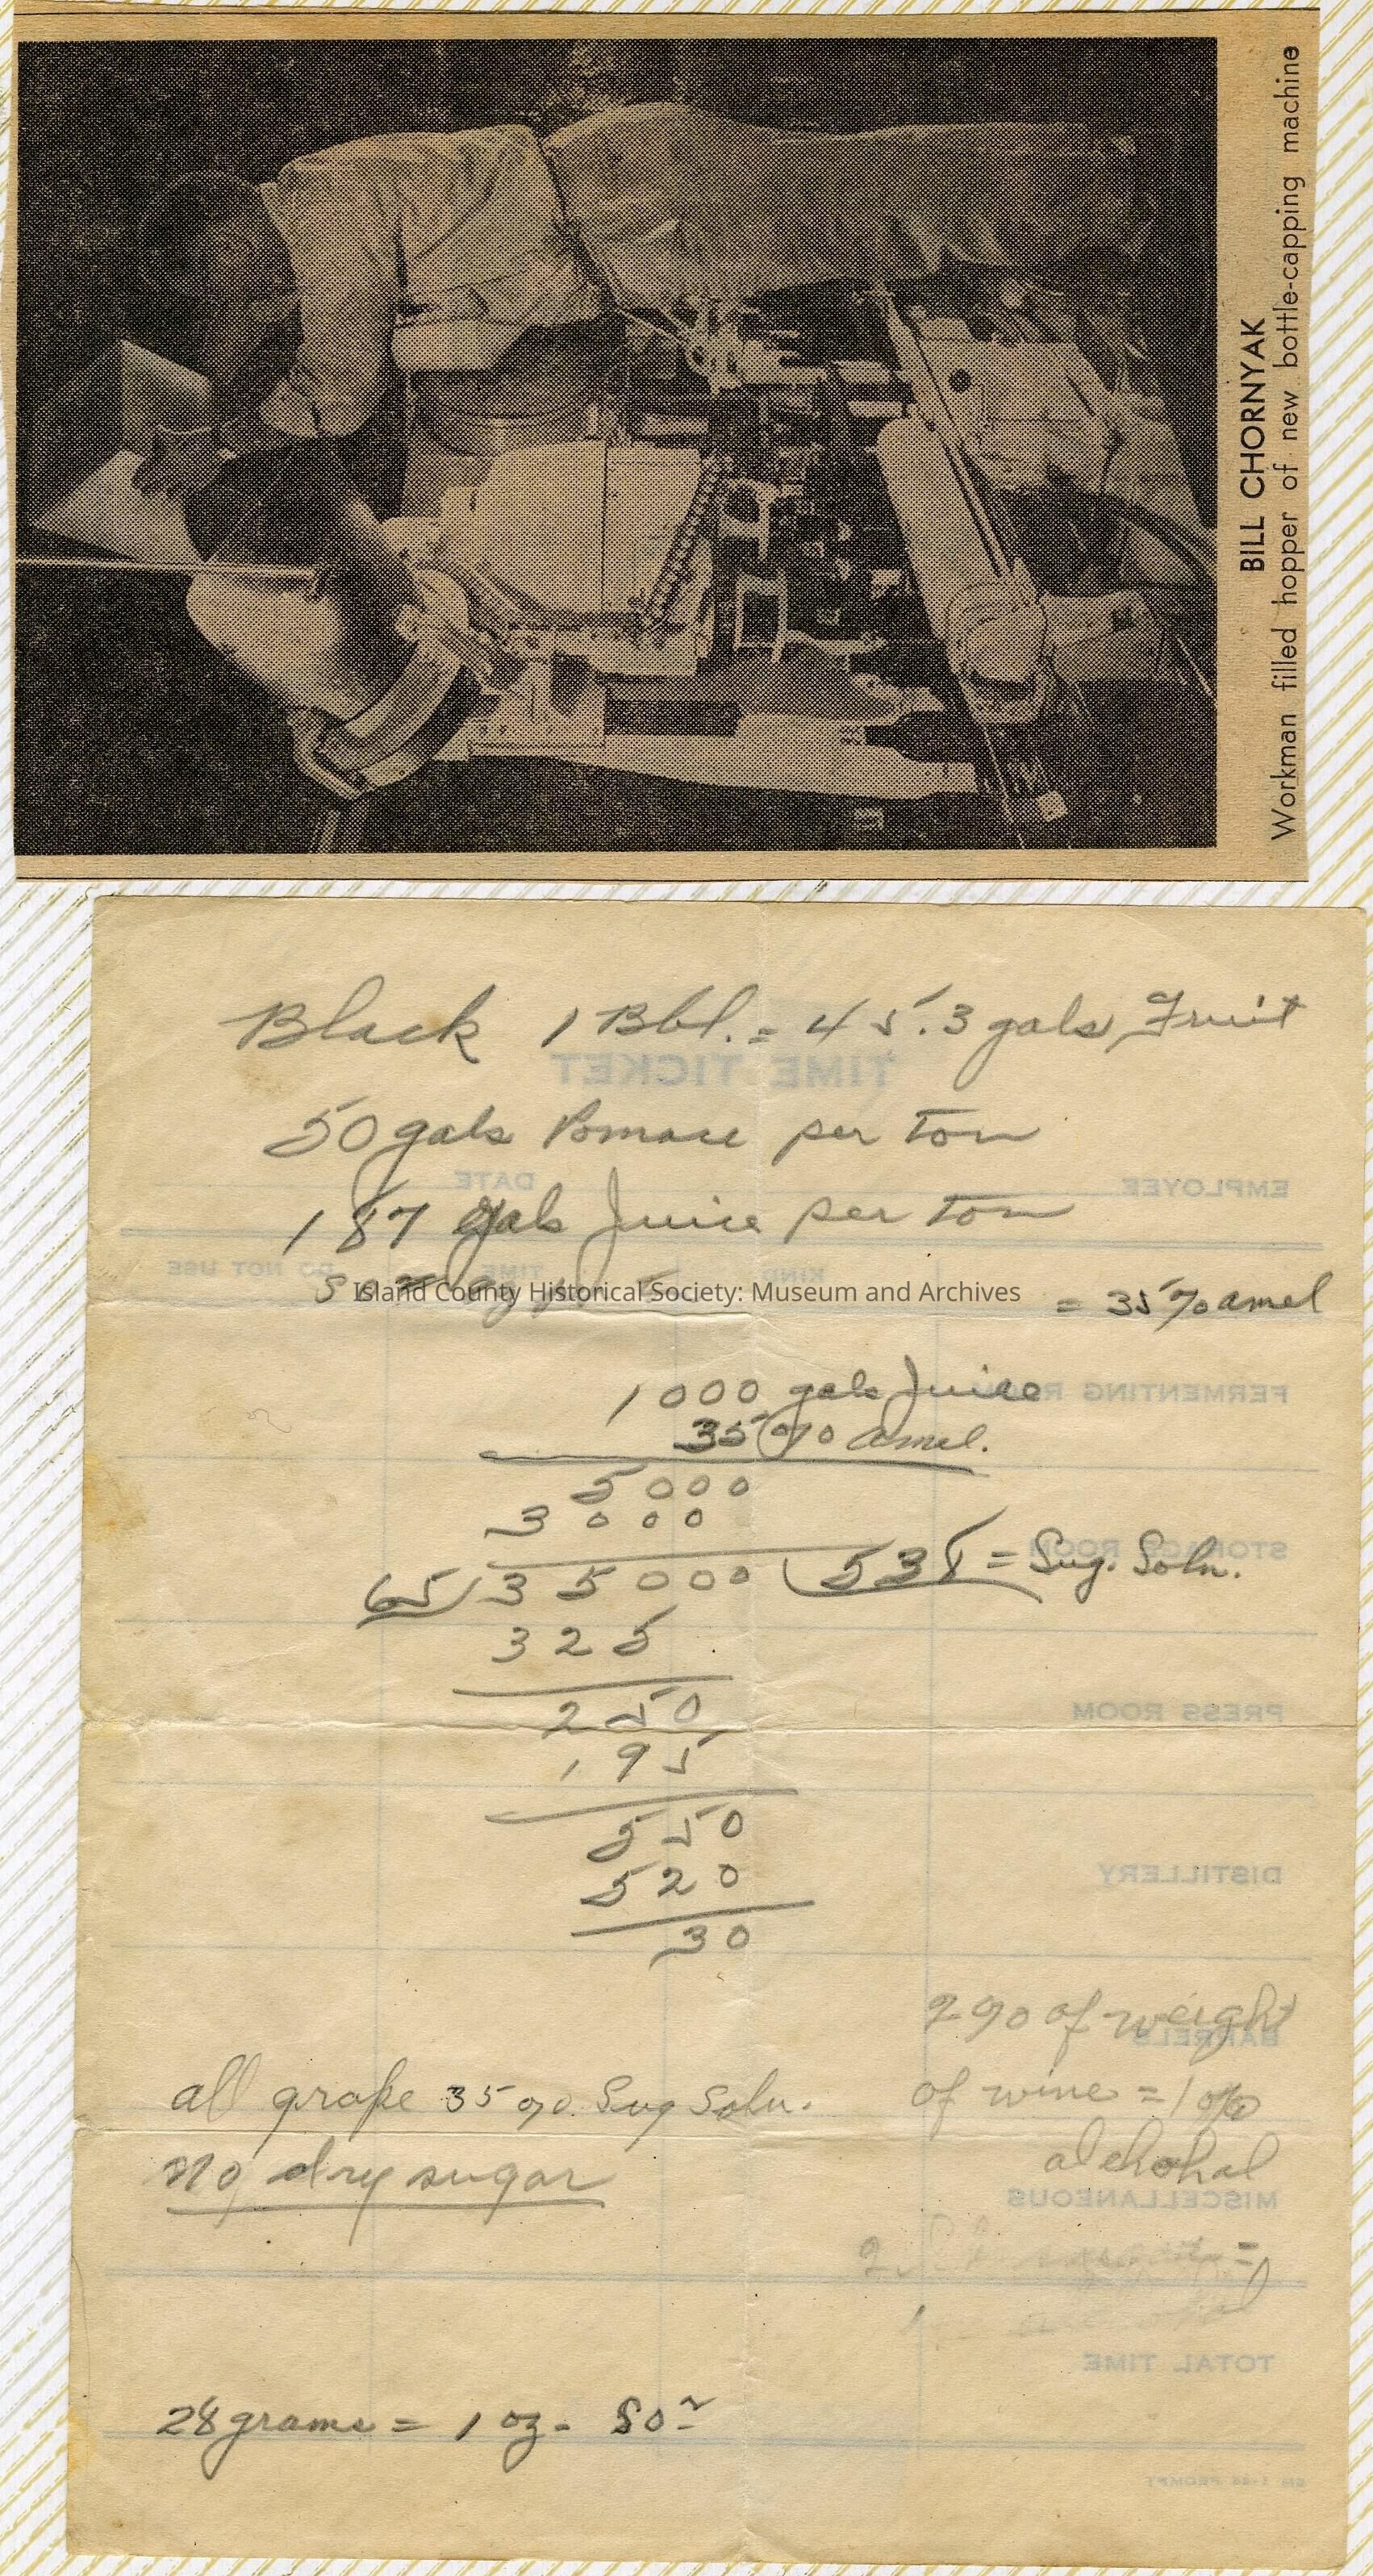 BILL CHORNYAK
Workman filled hopper of new bottle-capping machine
Black 1 Bbl. = 45.3 gals Fruit
TIME TICKET
50 gals Pomace per ton
EMPLOYEE DATE
187 gals Juice per ton
KIND TIME DO NOT USE
Island County Historical Society: Museum and Archives
= 35% amel
1000 gals Juice
FERMENTING ROOM
35% amel.
5000
3000
65 35000 538 = Sug. Soln.
STORAGE ROOM
325
250
PRESS ROOM
195
550
520
DISTILLERY
30
2% of weight
BARRELS
all grape 35%. Sug Soln.
of wine = 1%
no dry sugar
alchohal
MISCELLANEOUS
=
TOTAL TIME
28 grams = 1 oz-